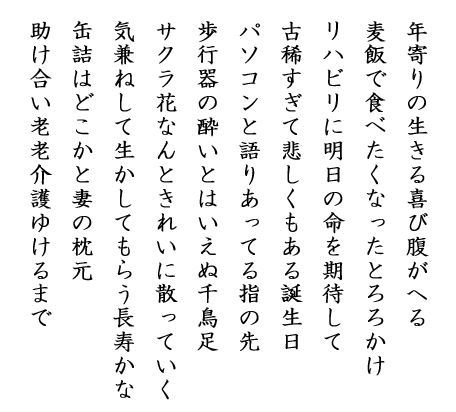 年寄りの生きる喜び腹がへる
麦飯で食べたくなったとろろかけ
リハビリに明日の命を期待して
古稀すぎて悲しくもある誕生日
パソコンと語りあってる指の先
歩行器の酔いとはいえぬ千鳥足
サクラ花なんときれいに散っていく
気兼ねして生かしてもらう長寿かな
缶詰はどこかと妻の枕元
助け合い老老介護ゆけるまで